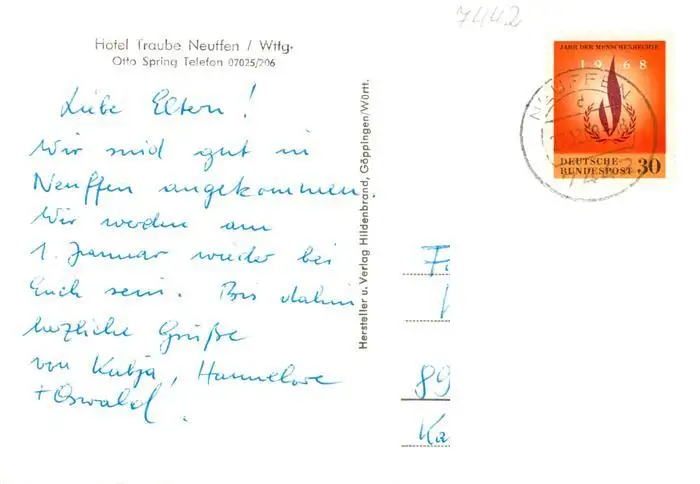 7442
Hotel Traube Neuffen / Wttg.
Otto Spring Telefon 07025/206
Liebe Eltern!
Wir sind gut in
Neuffen angekommen.
Wir werden am
1. Januar wieder bei
Euch sein. Bis dahin
herzliche Grüße
von Katja, Hannelore
+ Oswald.
Hersteller u. Verlag Hildenbrand, Göppingen/Württ.
JAHR DER MENSCHENRECHTE
1968
DEUTSCHE
BUNDESPOST 30
NEUFFEN
89
Ka